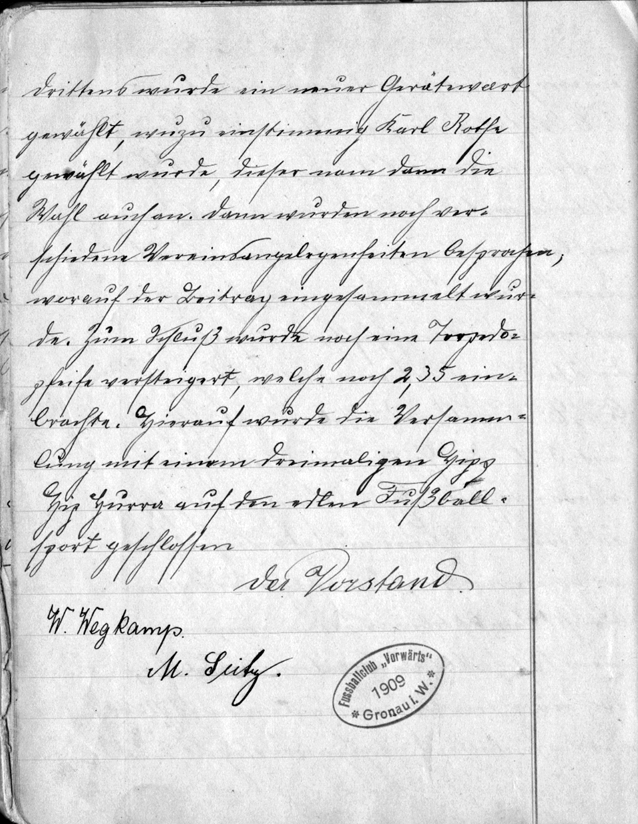 drittens wurde ein neuer Gerätewart
gewählt, wuzu einstimmig Karl Rothe
gewählt wurde, dieser nam dann die
Wahl auch an. Dann wurden noch ver-
schiedene Vereinsangelegenheiten besprochen,
worauf der Beitrag eingesammelt wur-
de. Zum Schluß wurde noch eine Torpedo-
pfeife versteigert, welche noch 2,35 ein-
brachte. Hierauf wurde die Versamm-
lung mit einem dreimaligen Hipp
Hip Hurra auf den edlen Fußball-
sport geschlossen
Der Vorstand.
W. Wegkamp.
M. Seitz.
Fussballclub „Vorwärts“
1909
* Gronau i. W. *